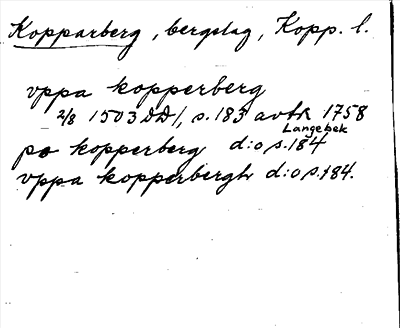 Kopparberg, bergslag, Kopp. l.
vppa kopperberg
2/8 1503 DD1, s. 183 avtr 1758
Langebek
po kopperberg d:o s. 184
vppa kopperbergh d:o s. 184.